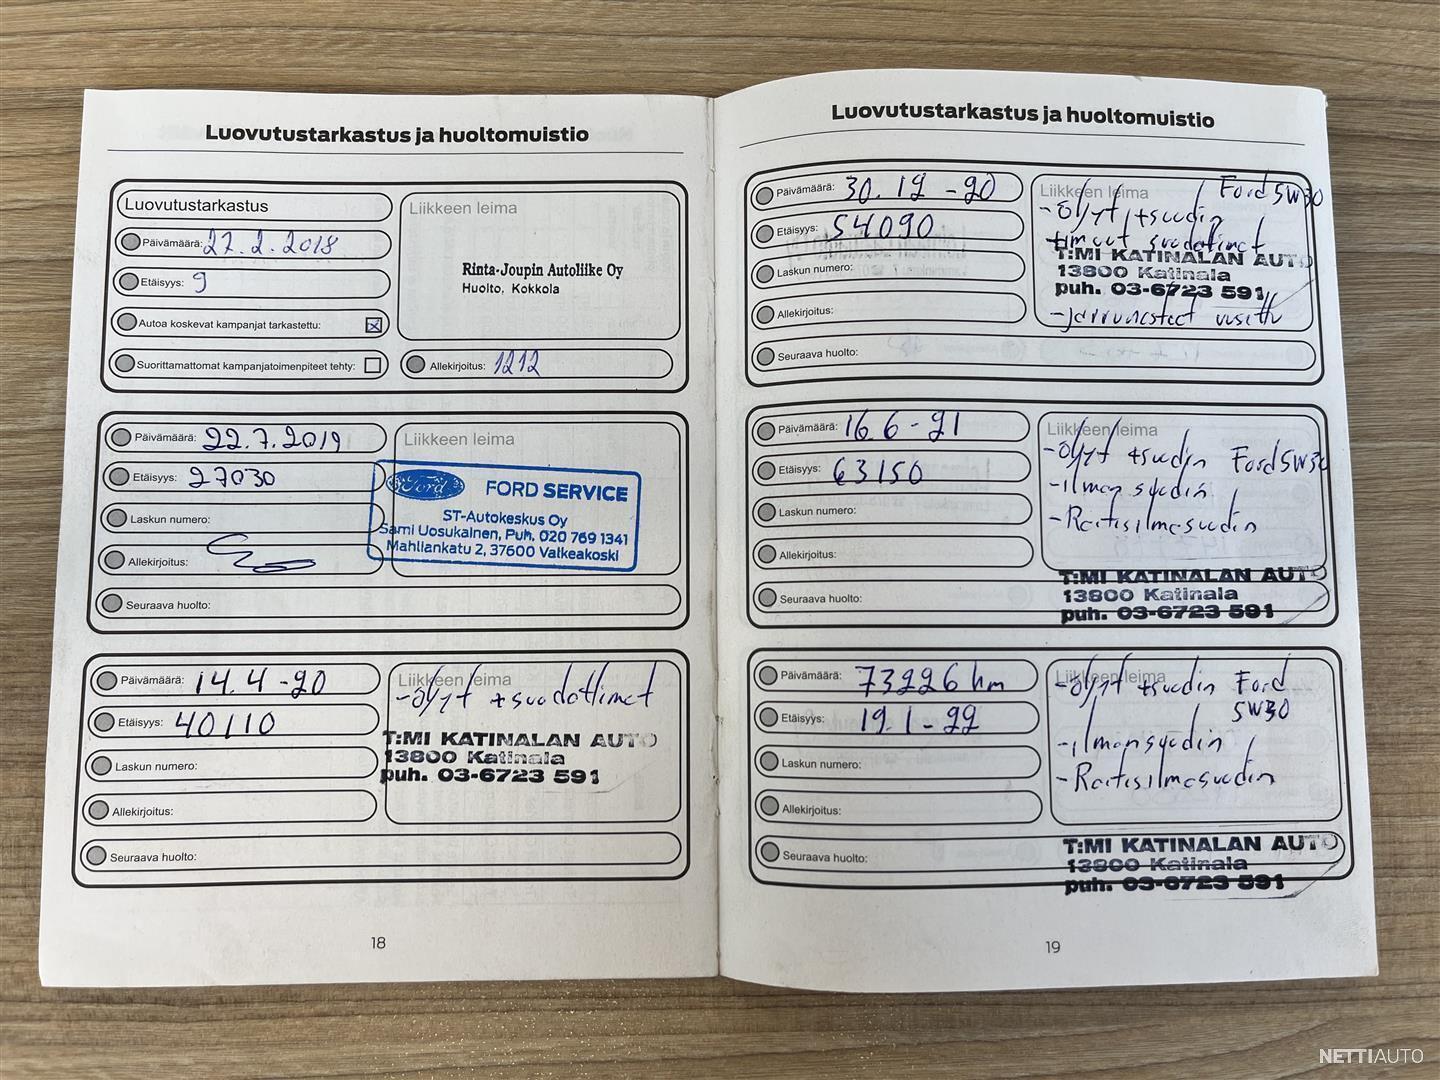 Luovutustarkastus ja huoltomuistio
Luovutustarkastus
Päivämäärä: 27.2.2018
Etäisyys: 9
Autoa koskevat kampanjat tarkastettu:
Suorittamattomat kampanjatoimenpiteet tehty:
Liikkeen leima
Rinta-Joupin Autoliike Oy
Huolto, Kokkola
Allekirjoitus: 1212
Päivämäärä: 22.7.2019
Etäisyys: 27030
Laskun numero:
Allekirjoitus:
Seuraava huolto:
Liikkeen leima
Ford FORD SERVICE
ST-Autokeskus Oy
Sami Uosukainen, Puh. 020 769 1341
Mahliankatu 2, 37600 Valkeakoski
Päivämäärä: 14.4-20
Etäisyys: 40110
Laskun numero:
Allekirjoitus:
Seuraava huolto:
Liikkeen leima
-öljyt +suodattimet
T:MI KATINALAN AUTO
13800 Katinala
puh. 03-6723 591
18
Luovutustarkastus ja huoltomuistio
Päivämäärä: 30.12-20
Etäisyys: 54090
Laskun numero:
Allekirjoitus:
Seuraava huolto:
Liikkeen leima
Ford 5W30
-öljyt +suodin
+muut suodattimet
T:MI KATINALAN AUTO
13800 Katinala
puh. 03-6723 591
-jarrunesteet
Päivämäärä: 16.6-21
Etäisyys: 63150
Laskun numero:
Allekirjoitus:
Seuraava huolto:
Liikkeen leima
-öljyt +suodin Ford 5W30
-ilman suodin
-Raitisilmasuodin
T:MI KATINALAN AUTO
13800 Katinala
puh. 03-6723 591
Päivämäärä: 73226 km
Etäisyys: 19.1-22
Laskun numero:
Allekirjoitus:
Seuraava huolto:
Liikkeen leima
-öljyt +suodin Ford
5W30
-ilmansuodin
-Raitisilmasuodin
T:MI KATINALAN AUTO
13800 Katinala
puh. 03-6723 591
19
NETTIAUTO